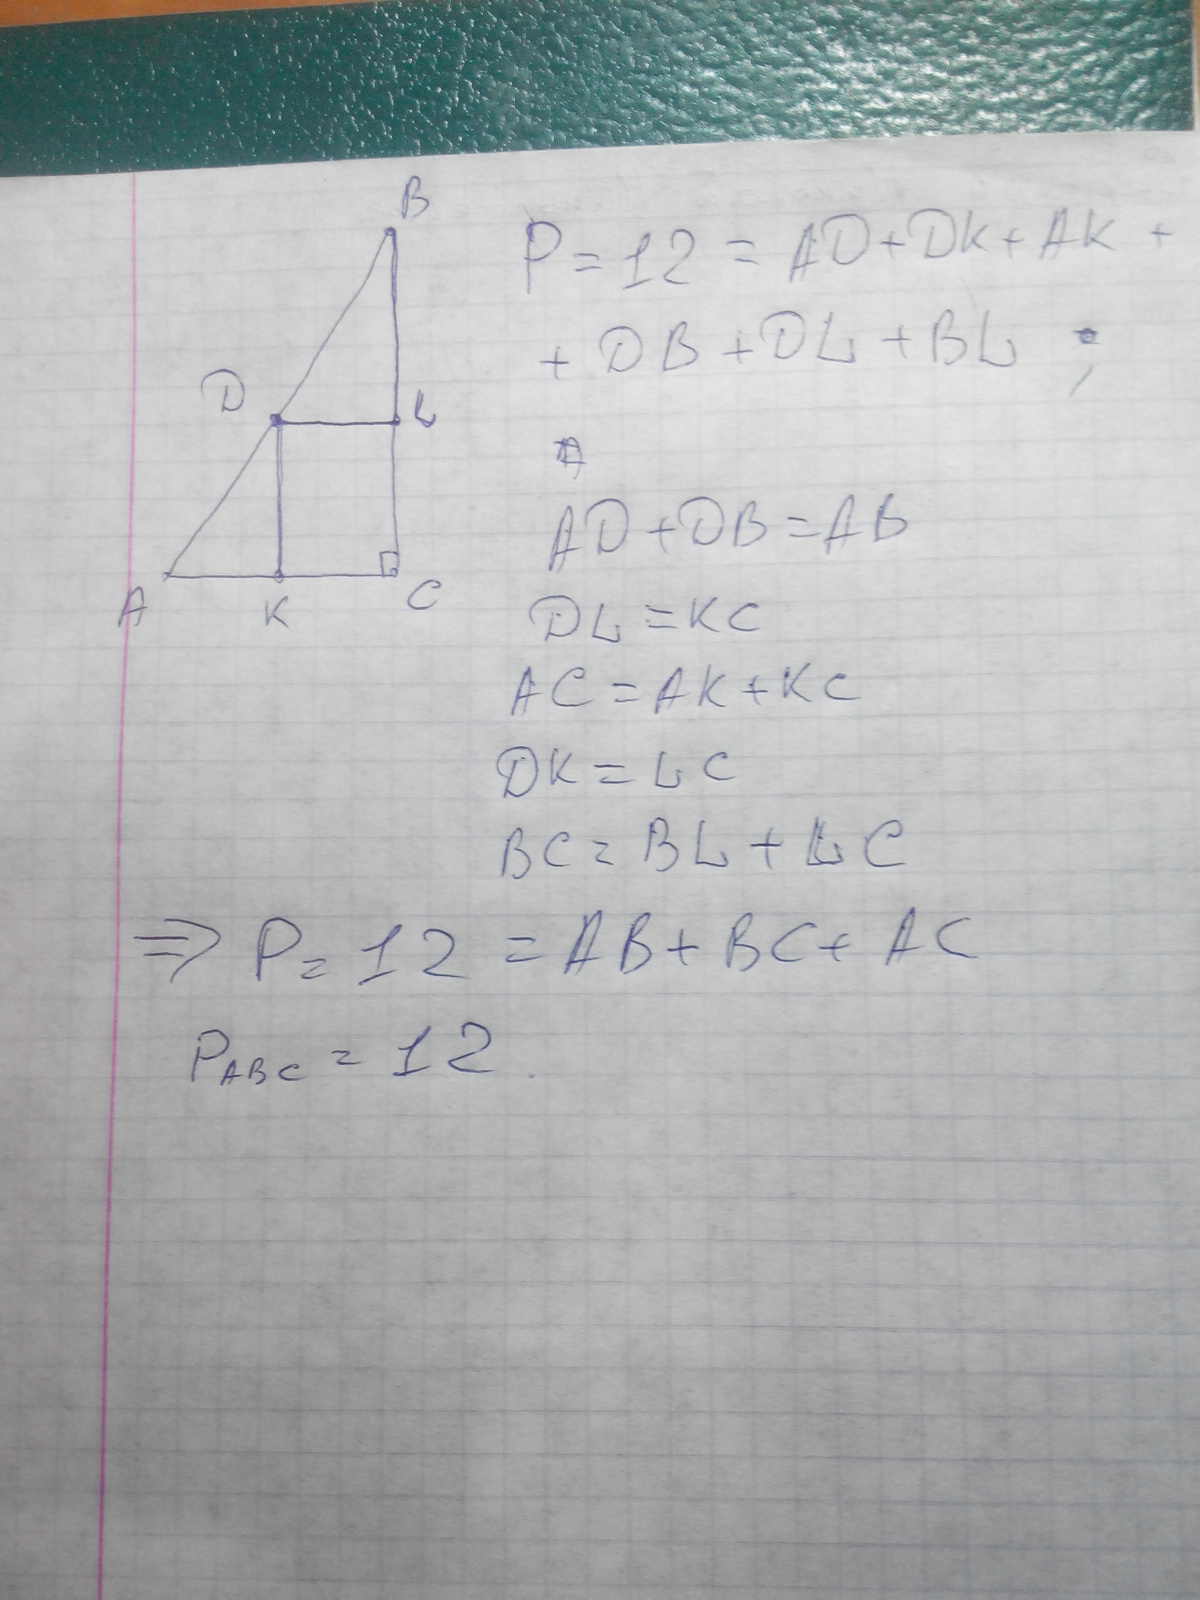 B
D
L
A
K
C
P = 12 = AD + DK + AK +
+ DB + DL + BL ;
AD + DB = AB
DL = KC
AC = AK + KC
DK = LC
BC = BL + LC
⇒ P = 12 = AB + BC + AC
P_ABC = 12.